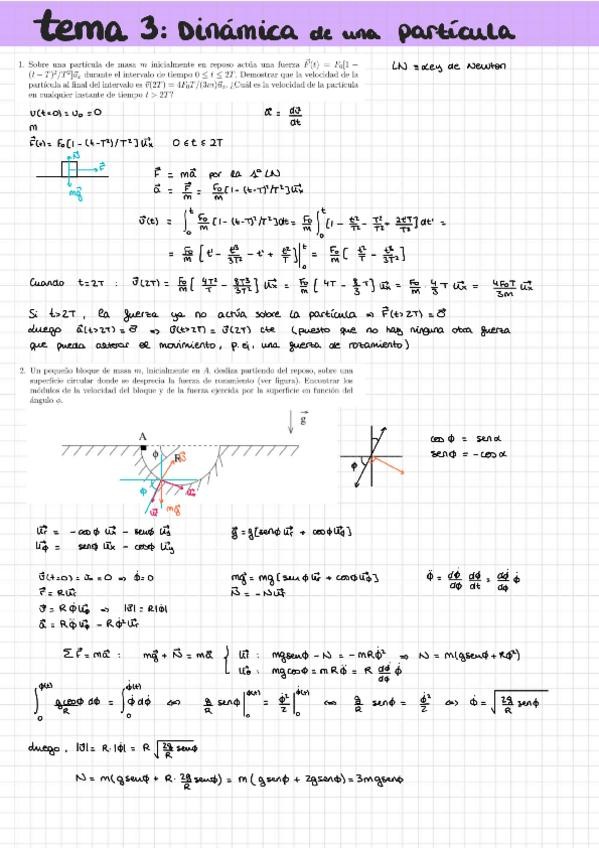 tema 3: Dinámica de una partícula
1. Sobre una partícula de masa m inicialmente en reposo actúa una fuerza F⃗(t) = F₀[1 −
(t − T)²/T²]u⃗ₓ durante el intervalo de tiempo 0 ≤ t ≤ 2T. Demostrar que la velocidad de la
partícula al final del intervalo es v⃗(2T) = 4F₀T/(3m)u⃗ₓ. ¿Cuál es la velocidad de la partícula
en cualquier instante de tiempo t > 2T?
LN = Ley de Newton
v(t=0) = v₀ = 0
a⃗ = dv⃗/dt
m
F⃗(t) = F₀[1-(t-T²)/T²] u⃗x 0≤t≤2T
N⃗
F⃗
mg⃗
F⃗ = ma⃗ por la 2ª LN
a⃗ = F⃗/m = F₀/m [1-(t-T)²/T²] u⃗x
v⃗(t) = ∫₀ᵗ F₀/m [1-(t-T)²/T²] dt = F₀/m ∫₀ᵗ [1 - t²/T² - T²/T² + 2t'T/T²] dt' =
= F₀/m [t' - t³/3T² - t' + t²/T] |₀ᵗ = F₀/m [t²/T - t³/3T²]
Cuando t=2T : v⃗(2T) = F₀/m [4T²/T - 8T³/3T²] u⃗x = F₀/m [4T - 8/3 T] u⃗x = F₀/m · 4/3 T u⃗x = 4F₀T/3m u⃗x
Si t>2T, la fuerza ya no actúa sobre la partícula ⇒ F⃗(t>2T) = 0⃗
Luego a⃗(t>2T) = 0⃗ ⇒ v⃗(t>2T) = v⃗(2T) cte (puesto que no hay ninguna otra fuerza
que pueda alterar el movimiento, p.ej, una fuerza de rozamiento)
2. Un pequeño bloque de masa m, inicialmente en A, desliza partiendo del reposo, sobre una
superficie circular donde se desprecia la fuerza de rozamiento (ver figura). Encontrar los
módulos de la velocidad del bloque y de la fuerza ejercida por la superficie en función del
ángulo φ.
g⃗
A
φ
R
φ
mg⃗
φ
cosφ = senα
senφ = -cosα
u⃗r = -cosφ u⃗x - senφ u⃗y
g⃗ = g[senφ u⃗r + cosφ u⃗φ]
u⃗φ = senφ u⃗x - cosφ u⃗y
v⃗(t=0) = v⃗₀ = 0 ⇒ φ̇=0
mg⃗ = mg[senφ u⃗r + cosφ u⃗φ]
φ̈ = dφ̇/dφ dφ/dt = dφ̇/dφ φ̇
r⃗ = R u⃗r
N⃗ = -N u⃗r
v⃗ = Rφ̇ u⃗φ ⇒ |v⃗| = R|φ̇|
a⃗ = Rφ̈ u⃗φ - Rφ̇² u⃗r
ΣF⃗ = ma⃗ : mg⃗ + N⃗ = ma⃗ { u⃗r : mgsenφ - N = -mRφ̇² ⇒ N = m(gsenφ + Rφ̇²)
u⃗φ : mgcosφ = mRφ̈ = R dφ̇/dφ φ̇
∫₀^φ(t) gcosφ/R dφ = ∫₀^φ̇(t) φ̇ dφ̇ ⇔ g/R senφ |₀^φ(t) = φ̇²/2 |₀^φ̇(t) ⇔ g/R senφ = φ̇²/2 ⇔ φ̇ = √(2g/R senφ)
Luego, |v⃗| = R·|φ̇| = R √(2g/R senφ)
N = m(gsenφ + R · 2g/R senφ) = m(gsenφ + 2gsenφ) = 3mgsenφ